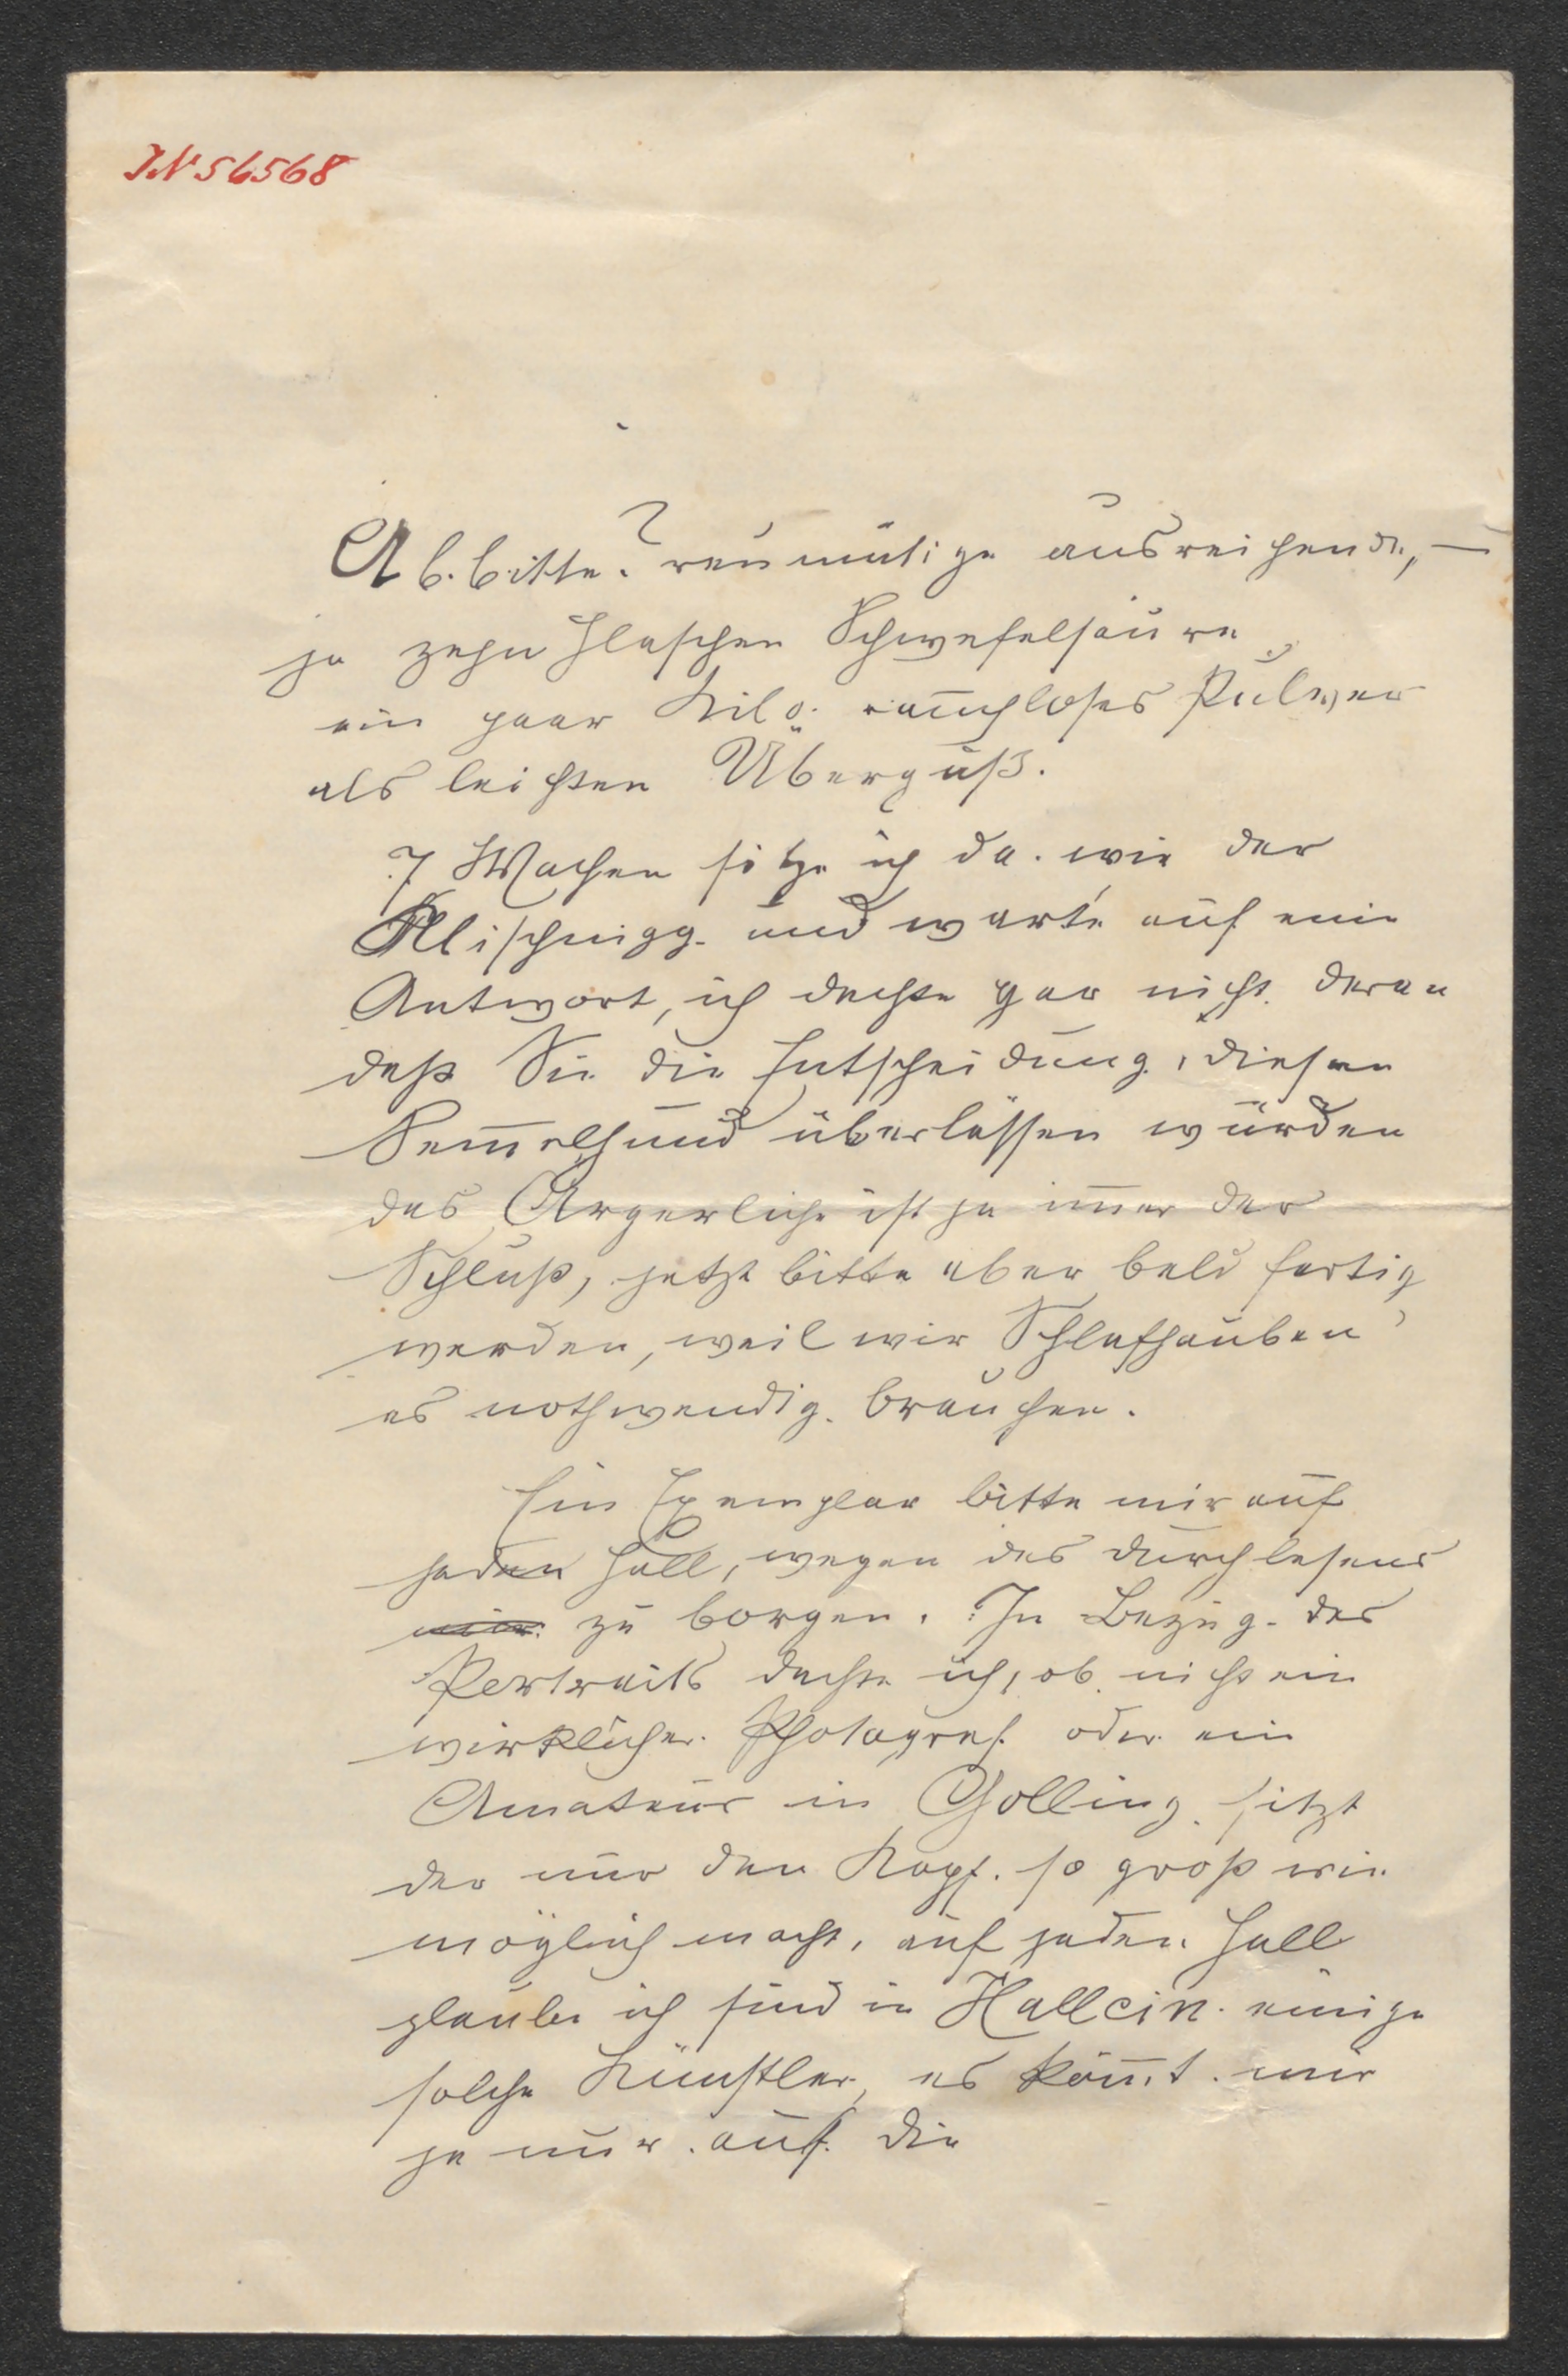 IN 56568
Abbitte? reumütige ausreichende, —
ja zehn Flaschen Schwefelsäure
ein paar Kilo rauchloses Pulver
als leichten Überguß.
7 Wochen sitze ich da. wie der
Klischnigg. und warte auf eine
Antwort, ich dachte gar nicht daran
daß Sie die Entscheidung, diesen
Kem̅elhund überlassen würden
das Ärgerliche ist ja im̅er der
Schluß, jetzt bitte aber bald fertig
werden, weil wir Schlafhauben
es nothwendig. brauchen.
Ein Exemplar bitte mir auf
jeden Fall, wegen des durchlesens
zu borgen. In Bezug. des
Portraits dachte ich, ob. nicht ein
wirklicher. Photograf. oder ein
Amateur in Golling. sitzt
der nur den Kopf. so groß wie
möglich macht, auf jeden Fall
glaube ich sind in Hallein. einige
solche Künstler, es köm̅t. mir
ja nur. auf. die